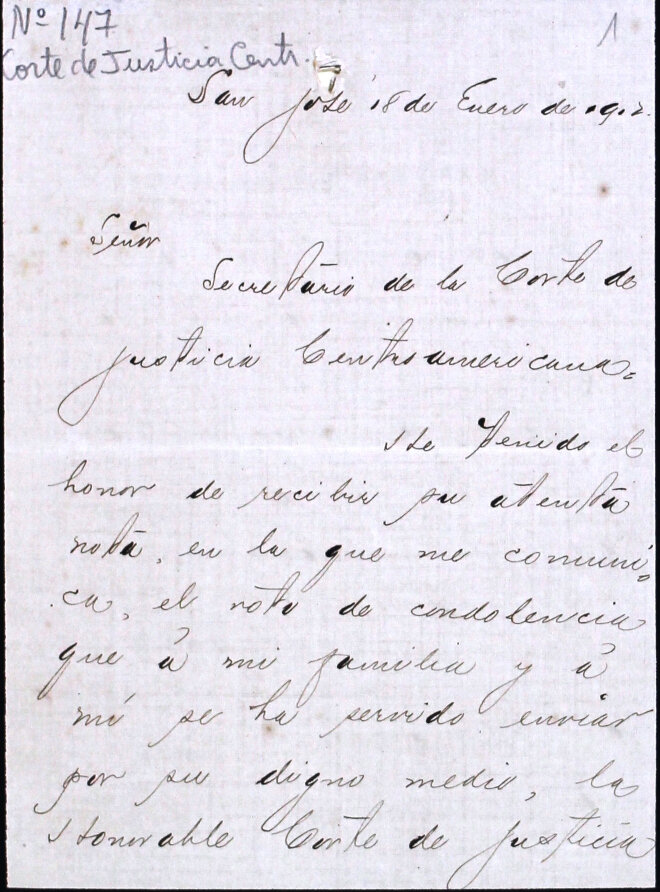 Nº 147
1
Corte de Justicia Centr.
San José 18 de Enero de 1912.
Señor
Secretário de la Corte de
Justicia Centroamericana=
He tenido el
honor de recibir su atenta
nota, en la que me comuni=
ca, el voto de condolencia
que á mi familia y á
mí se ha servido enviar
por su digno medio, la
Honorable Corte de Justicia